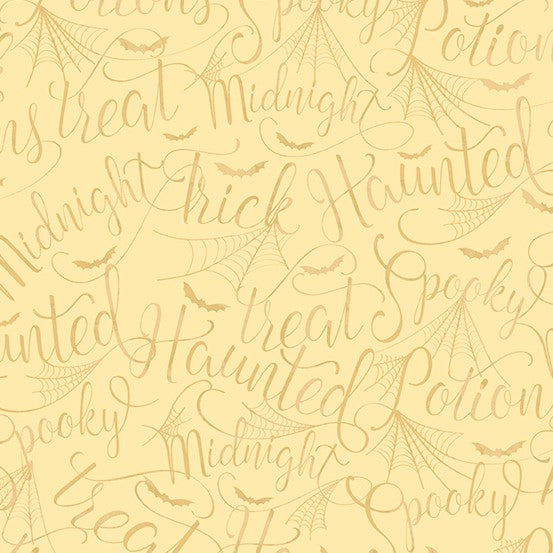 Potions Spooky Potion
ns treat Midnight
Midnight Trick Haunted
treat Spooky
unted Haunted Potion
Spooky Midnight
treat Haunt Spooky